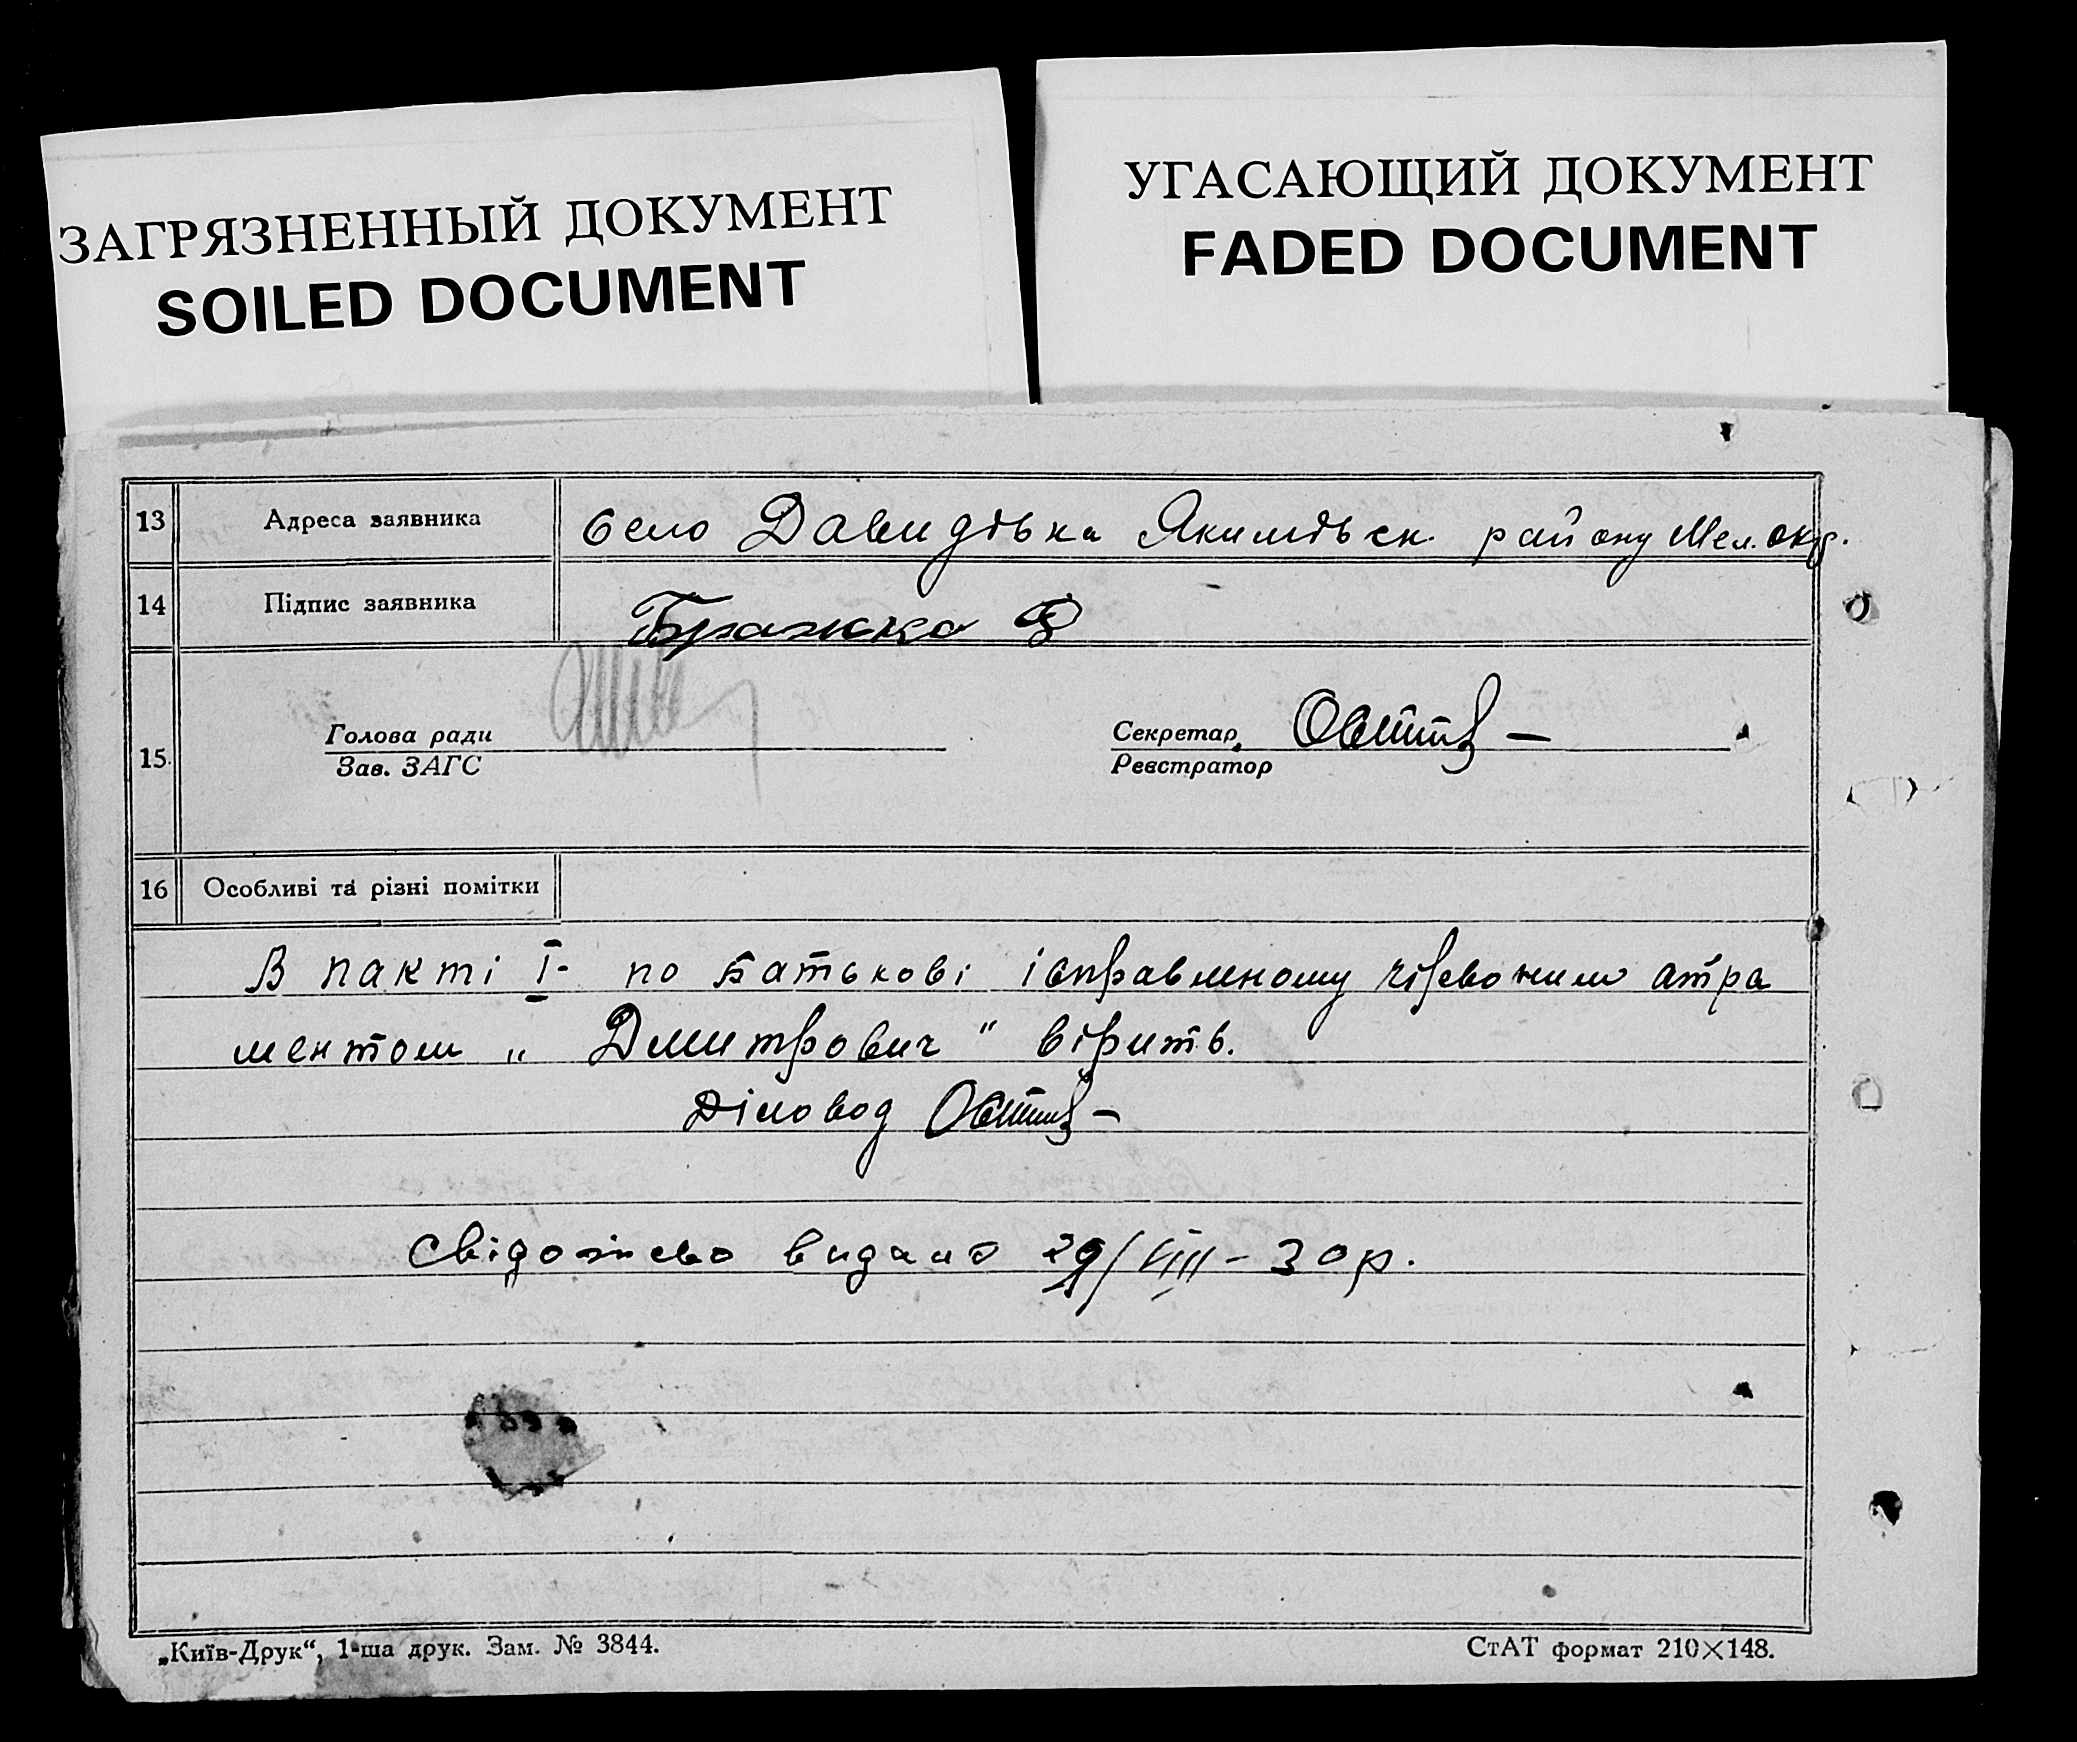 ЗАГРЯЗНЕННЫЙ ДОКУМЕНТ
SOILED DOCUMENT
УГАСАЮЩИЙ ДОКУМЕНТ
FADED DOCUMENT
13 Адреса заявника село Давидівка Якимівськ. району Мел. окр.
14 Підпис заявника Бражко Ф
15. Голова ради Секретар
Зав. ЗАГС Реєстратор
16 Особливі та різні помітки
В пакті I- по батькові ісправленому червоним атра
ментом „Дмитрович" вірить.
Діловод
Свідоцтво видано 29/VIII-30р.
„Київ-Друк“, 1-ша друк. Зам. № 3844.
СтАТ формат 210×148.